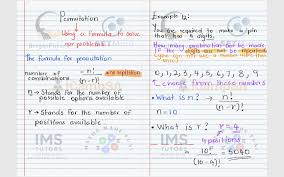 Permutation
Using a formula to solve
our problems!
The formula for permutation
number of combinations = n! / (n-r)! → no repetition
n → Stands for the number of
possible options available
r → Stands for the number of
positions available
IMS
TUTORS
Example 12:
You are required to make a pin
that has 4 digits.
How many combinations can be made
if the digits can not be repeated
0, 1, 2, 3, 4, 5, 6, 7, 8, 9
choose from these numbers
• What is n?
n = 10
n! / (n-r)!
• What is r?
r = 4
4 positions
10! / (10-4)! = 5040
IMS
TUTORS